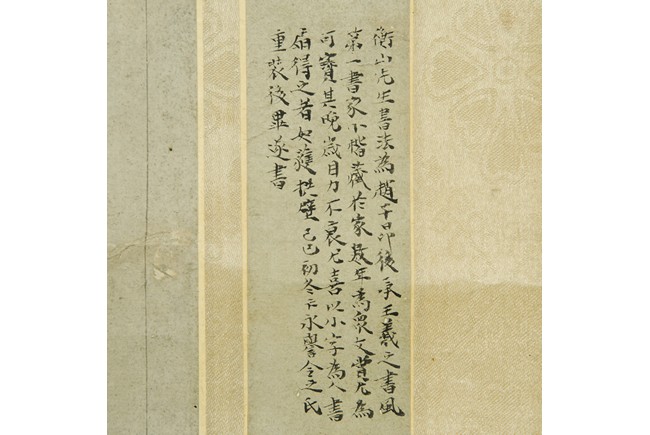 衡山先生書法為趙子昂後承王羲之書風
第一書家小楷藏於家歲年為眾文賞尤為
可寶其晚歲目力不衰尤喜以小字為人書
扇得之者如獲拱璧己巳初冬卞永譽令之氏
重裝後畢遂書